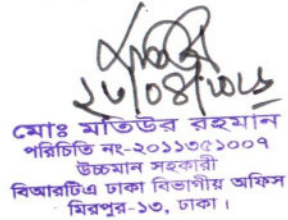 ২৩/০৪/২০১৯
মোঃ মতিউর রহমান
পরিচিতি নং-২০১১৩৫১০০৭
উচ্চমান সহকারী
বিআরটিএ ঢাকা বিভাগীয় অফিস
মিরপুর-১৩, ঢাকা।